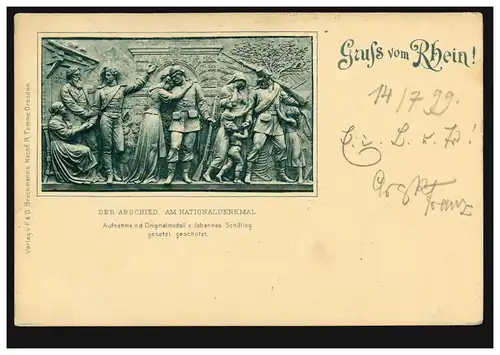 Gruss vom Rhein!
14/7 99.
DER ABSCHIED. AM NATIONALDENKMAL
Aufnahme n.d. Originalmodell v. Johannes Schilling
gesetzl. geschützt.
Verlag v. F. & O. Brockmann's Nachf. R. Tamme, Dresden
Franz